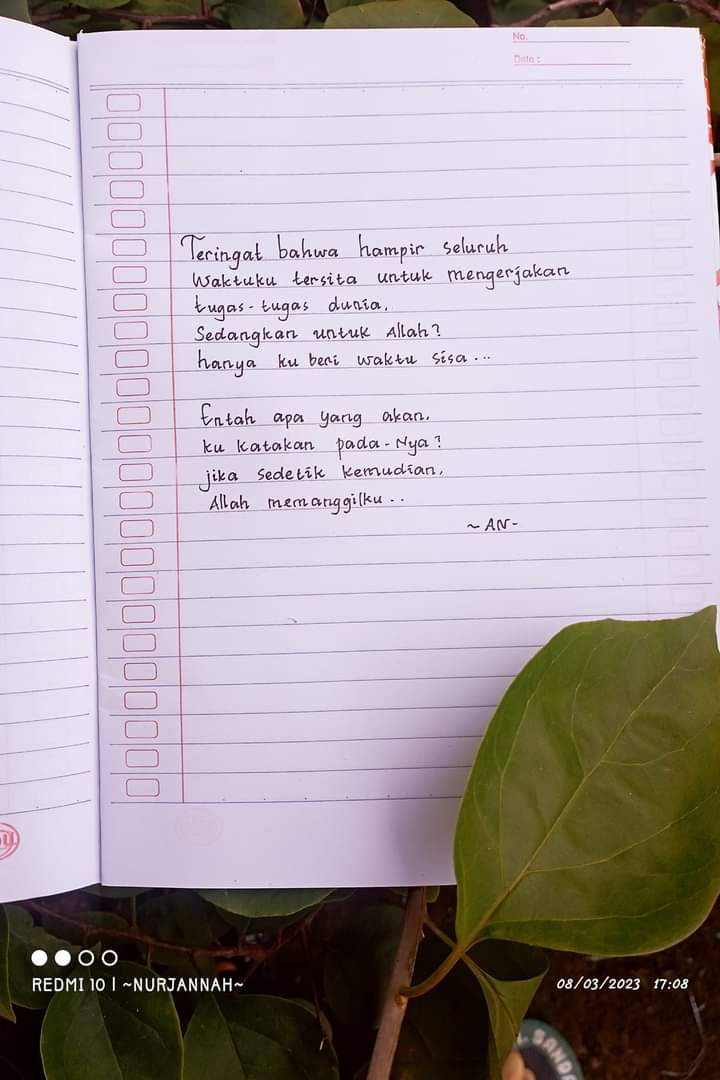 No.
Date :
Teringat bahwa hampir seluruh
Waktuku tersita untuk mengerjakan
tugas-tugas dunia.
Sedangkan untuk Allah?
hanya ku beri waktu sisa...
Entah apa yang akan.
ku katakan pada-Nya?
jika sedetik kemudian.
Allah memanggilku..
~AN-
REDMI 10 | ~NURJANNAH~
08/03/2023 17:08